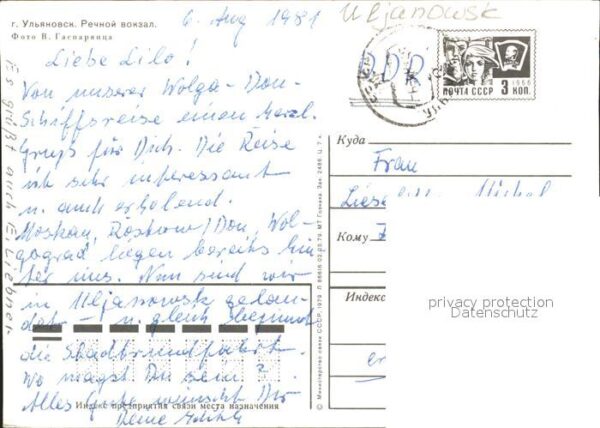 г. Ульяновск. Речной вокзал.
Фото В. Гаспарянца
6. Aug 1981
Uljanowsk
DDR
ПОЧТА СССР 3 КОП.
1966
Liebe Lilo!
Von unserer Wolga-Don-
Schiffsreise einen herzl.
Gruß für Dich. Die Reise
ist sehr interessant
u. auch erholend.
Moskau, Rostow/Don, Wol-
gograd liegen bereits hin-
ter uns. Nun sind wir
in Uljanowsk gelan-
det – u. gleich beginnt
die Stadtrundfahrt.
Wo magst Du sein?
Alles Gute wünscht Dir
Deine
Es grüßt auch E. Liebner.
Индекс предприятия связи места назначения
© Министерство связи СССР, 1979
МТ Гознака. Зак. Ц. 7 к.
Куда
Frau
Michel
Кому
Индекс
privacy protection
Datenschutz